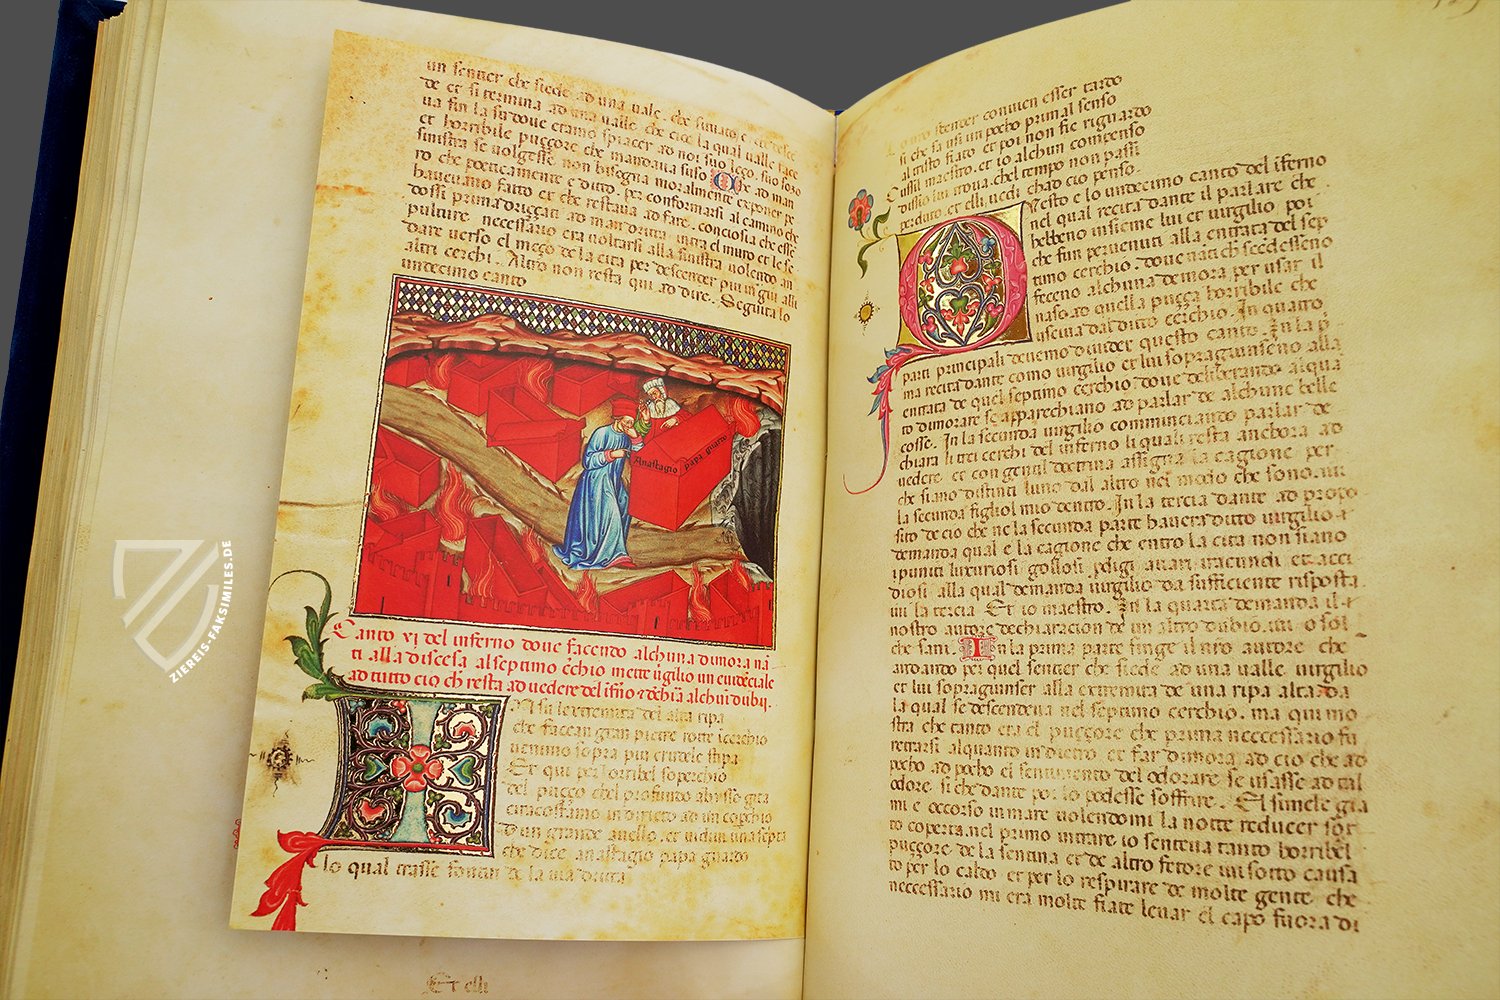 un sentier che siede ad una vale. che
de et si termina ad una valle che
va fin la su dove eramo spiacer ad noi suo lezo. suo foro
et horribile puzzore che mandava suso Che ad man
sinistra se volgesse non bisogna moralmente exponer pe
ro che poeticamente e ditto. per conformarsi al camino che
haveuano fatto et che restava ad fare. conciosia che esse
dossi prima drizzati ad man dritta intra el muro et le se
pulture. necessario era voltarsi alla sinistra volendo an
dare verso el mezo de la cita per descender piu in giu alli
altri cerchi. Altro non resta qui ad dire. Seguita lo
undecimo canto
Anastagio papa guardo
Canto XI del inferno dove facendo alchuna dimora
ti alla discesa al septimo mette virgilio
ad tutto cio ch resta ad vedere del
In su l extremita del alta ripa
che facean gran pietre rotte i cerchio
venimo sopra piu crudele stipa
Et qui per l orribel soperchio
del puzzo chel profundo abysso gitta
ci racostamo in dirieto ad un coperchio
D un grande avello. ove vidi una scripta
che dice. anastagio papa guardo
lo qual trasse fotin de la via dritta
Et elli
ZIEREIS-FAKSIMILES.DE
Lo nostro scender convien esser tardo
si che s ausi un pocho prima l senso
al tristo fiato et poi non fie riguardo
Cussi l maestro. et io alchun compenso
dissi lui trova. chel tempo non passi
perduto. et elli. vedi ch ad cio penso.
Questo e lo undecimo canto del iferno
nel qual recita dante il parlare che
hebbeno insieme lui et virgilio poi
che fun pervenuti alla entrata del sep
timo cerchio. dove nanti ch scendesseno
feceno alchuna dimora per usar il
naso ad quella puzza horribile che
usciva dal ditto cerchio. In quatro
parti principali devemo divider questo canto. In la p
ma recita dante como virgilio et lui sopragiunseno alla
entrata de quel septimo cerchio dove deliberando alqua
to dimorare se apparechiano ad parlar de alchune belle
cosse. In la seconda virgilio comminciando parlar de
chiara li tre cerchi del inferno li quali resta anchora ad
vedere. et con gentil doctrina assigna la cagione per
che siano distinti luno dal altro nel mezo che sono. ivi
la secunda figliol mio dentro. In la tercia dante ad propo
sito de cio che ne la secunda parte haveva ditto virgilio
demanda qual e la cagione che entro la cita non siano
i puniti luxuriosi gollosi pdigi avari iracundi et acci
diosi alla qual demanda virgilio da sufficiente risposta
ivi la tercia. Et io maestro. In la quarta demanda il
nostro autore dechiaracion de un altro dubio. ivi o sol
che sani. In la prima parte finge il nro autore che
andando per quel sentier che siede ad una valle virgilio
et lui sopragiunser alla extremita de una ripa alta da
la qual se descendeva nel septimo cerchio. ma qui mo
stra che tanto era el puzzore che prima neccessario fu
retrarsi alquanto in dietro et far dimora ad cio che ad
pocho ad pocho el sentimento del odorare se usasse ad tal
odore. si che dante poi lo podesse soffrire. El simele gia
mi e occorso in mare volendomi la notte reducer sot
to coperta. nel primo intrare io senteva tanto horribel
puzzore de la sentina et de altro fetore ivi sotto causa
to per lo caldo et per lo respirare de molte gente. che
neccessario mi era molte fiate levar el capo fuora di